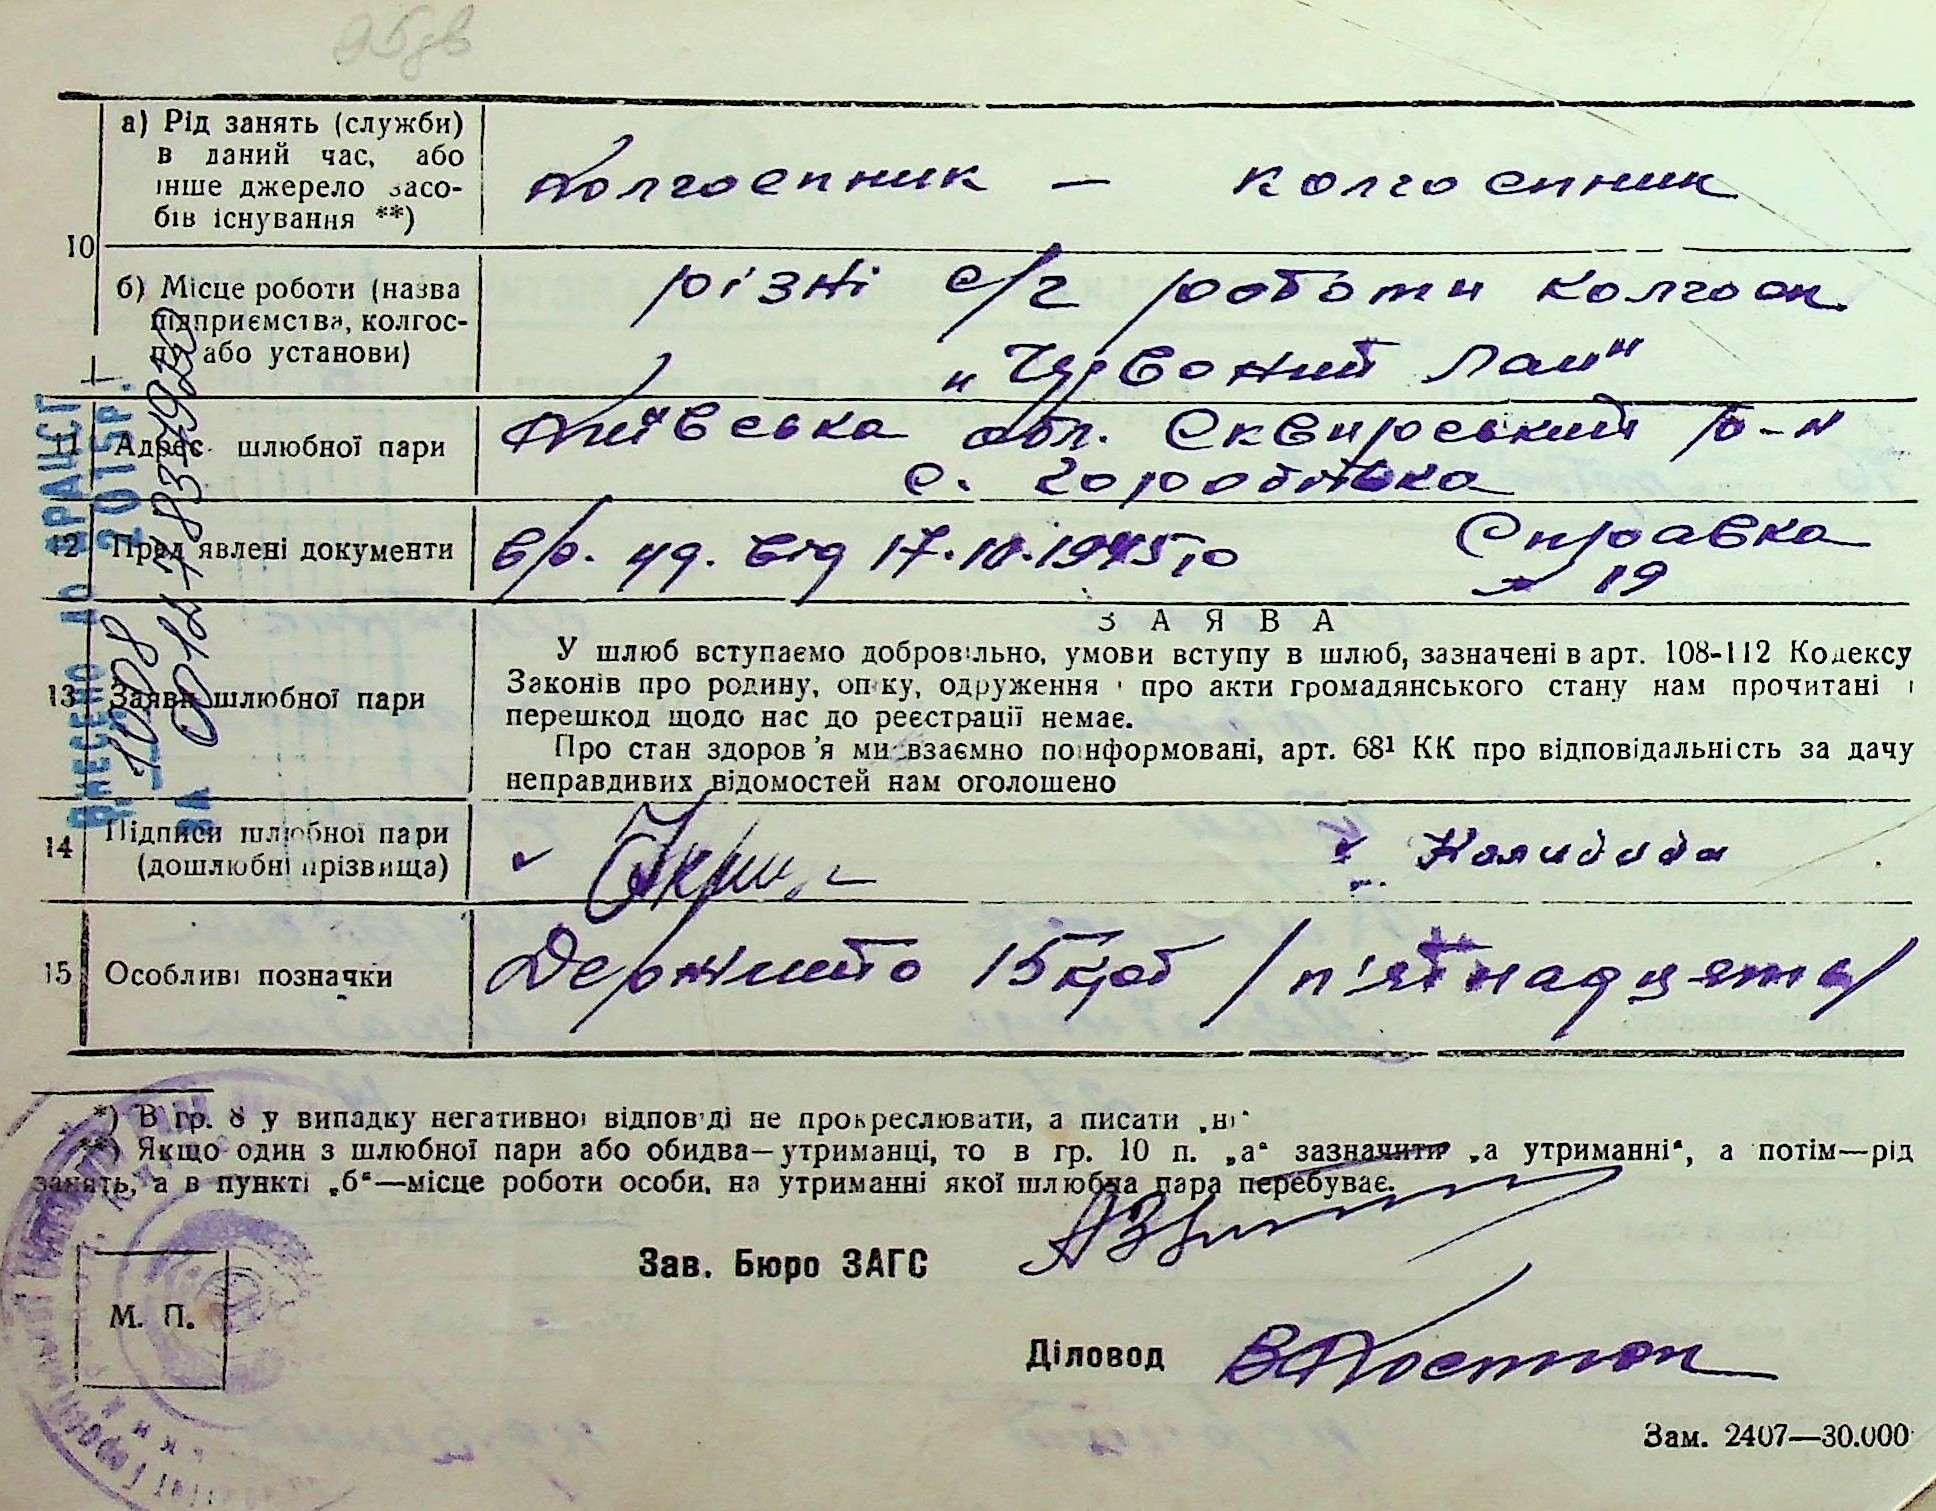 а) Рід занять (служби)
в даний час, або
інше джерело засо-
бів існування **)
Колгоспник — колгоспник
10
б) Місце роботи (назва
підприємства, колгос-
пу або установи)
різні с/г роботи колгосп
„Червоний Лан"
11 Адрес шлюбної пари
Київська обл. Сквирський р-н
с. Горобіївка
12 Пред'явлені документи
вр. уд. від 17.10.1945 ю
Справка
№ 19
13 Заява шлюбної пари
ЗАЯВА
У шлюб вступаємо добровільно, умови вступу в шлюб, зазначені в арт. 108-112 Кодексу
Законів про родину, опіку, одруження і про акти громадянського стану нам прочитані і
перешкод щодо нас до реєстрації немає.
Про стан здоров'я ми взаємно поінформовані, арт. 68¹ КК про відповідальність за дачу
неправдивих відомостей нам оголошено
14 Підписи шлюбної пари
(дошлюбні прізвища)
15 Особливі позначки
Держмито 15 крб /п'ятнадцять/
ВНЕСЕНО ДО ДРАЦСГ
1008 201 5 Р.
ЗА 0012-78334920
*) В гр. 8 у випадку негативної відповіді не прокреслювати, а писати „ні"
**) Якщо один з шлюбної пари або обидва—утриманці, то в гр. 10 п. „а" зазначити „а утриманні", а потім—рід
занять, а в пункті „б"—місце роботи особи, на утриманні якої шлюбна пара перебуває.
Зав. Бюро ЗАГС
М. П.
Діловод ВКостюк
Зам. 2407—30.000